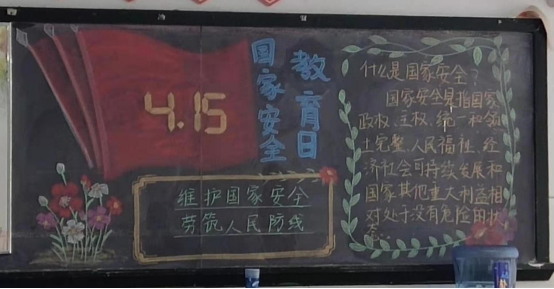 4.15
国家安全
教育日
维护国家安全
劳筑人民防线
什么是国家安全?
国家安全是指国家
政权、主权、统一和领
土完整、人民福祉、经
济社会可持续发展和
国家其他重大利益相
对处于没有危险的状
态